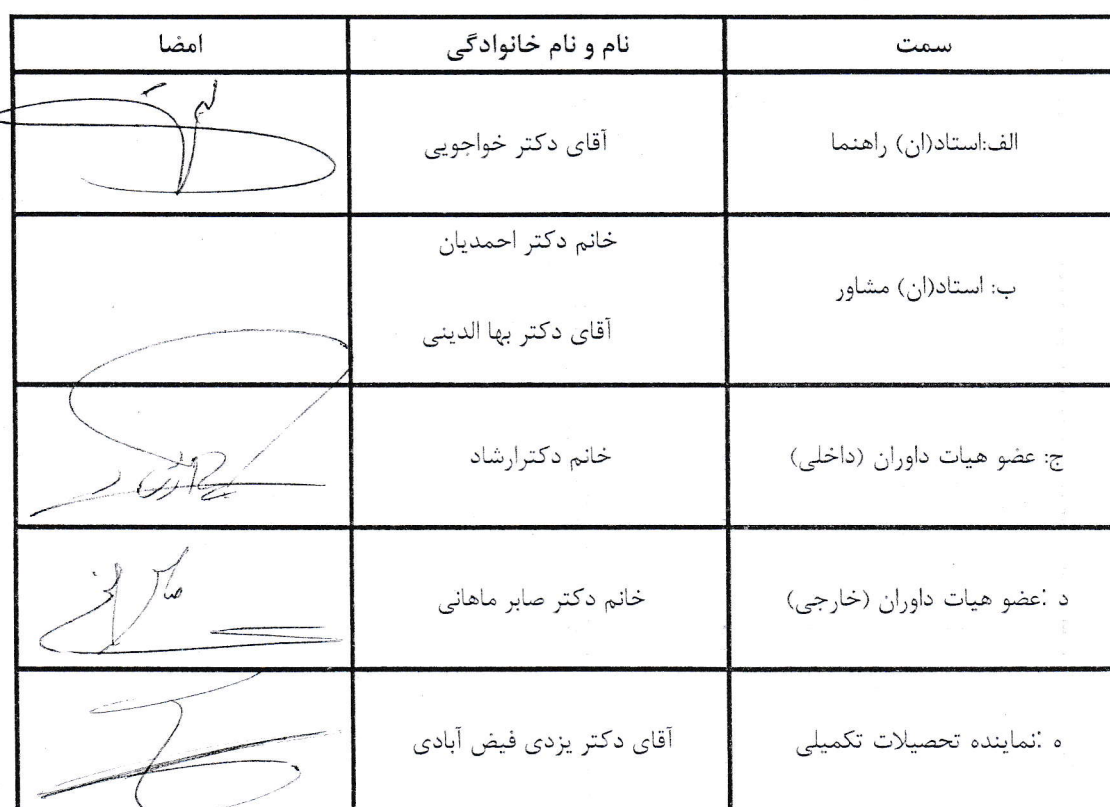 سمت نام و نام خانوادگی امضا
الف:استاد(ان) راهنما آقای دکتر خواجویی
خانم دکتر احمدیان
ب: استاد(ان) مشاور
آقای دکتر بها الدینی
ج: عضو هیات داوران (داخلی) خانم دکترارشاد
د :عضو هیات داوران (خارجی) خانم دکتر صابر ماهانی
ه :نماینده تحصیلات تکمیلی آقای دکتر یزدی فیض آبادی